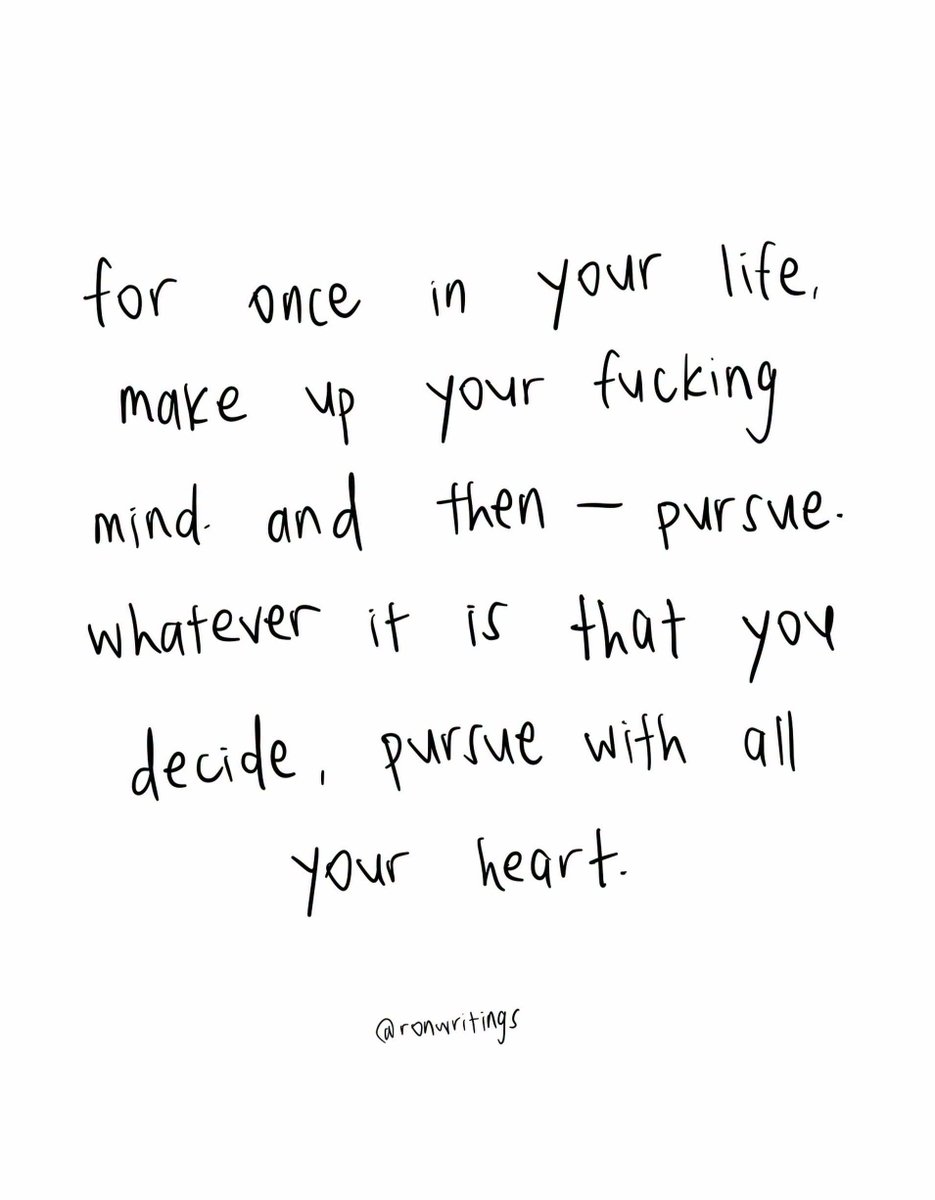 for once in your life,
make up your fucking
mind. and then — pursue.
whatever it is that you
decide, pursue with all
your heart.
@ronwritings